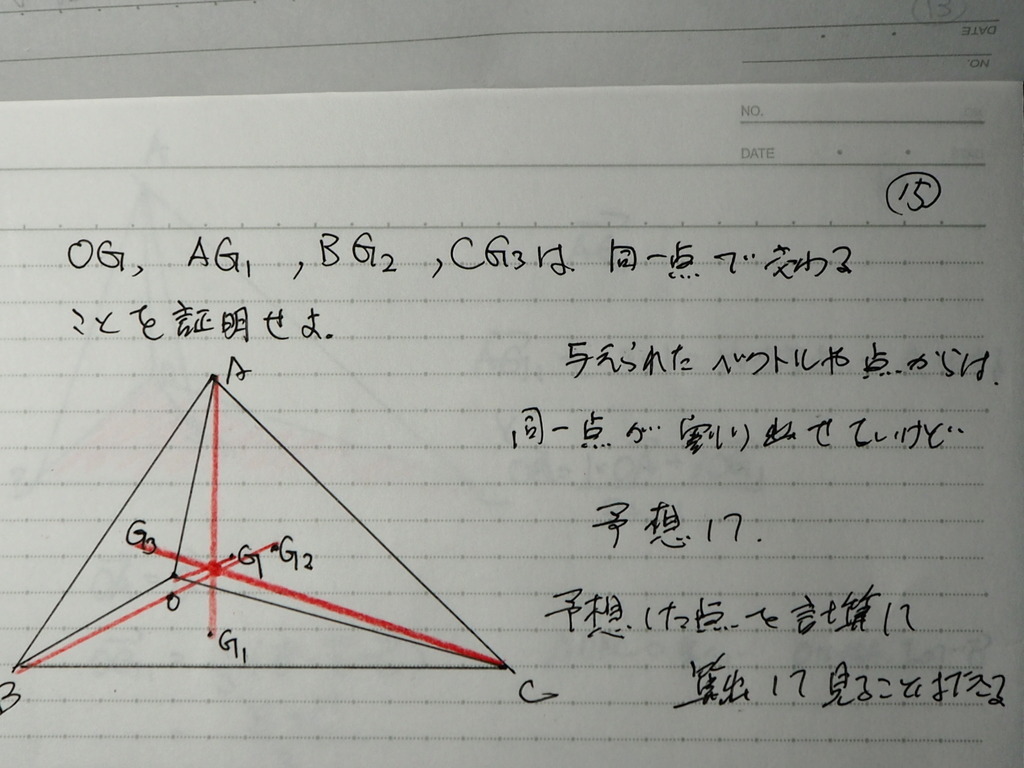 NO.
DATE
NO.
DATE
⑮
OG, AG₁, BG₂, CG₃は 同一点で交わる
ことを証明せよ.
与えられたベクトルや点からは.
同一点が割り出せないけど…
予想して.
予想した点を計算して
算出して見ることはできる
A
G₃
G
G₂
O
G₁
B
C